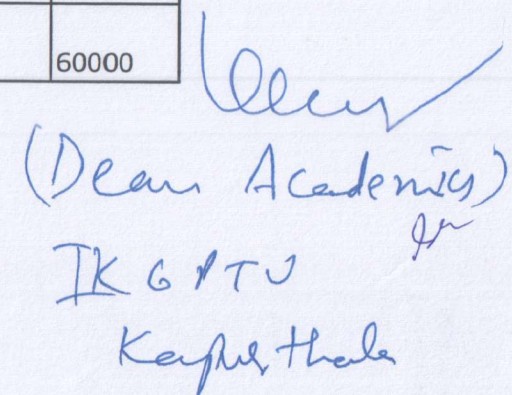 60000
(Dean Academics)
IKGPTU
Kapurthala